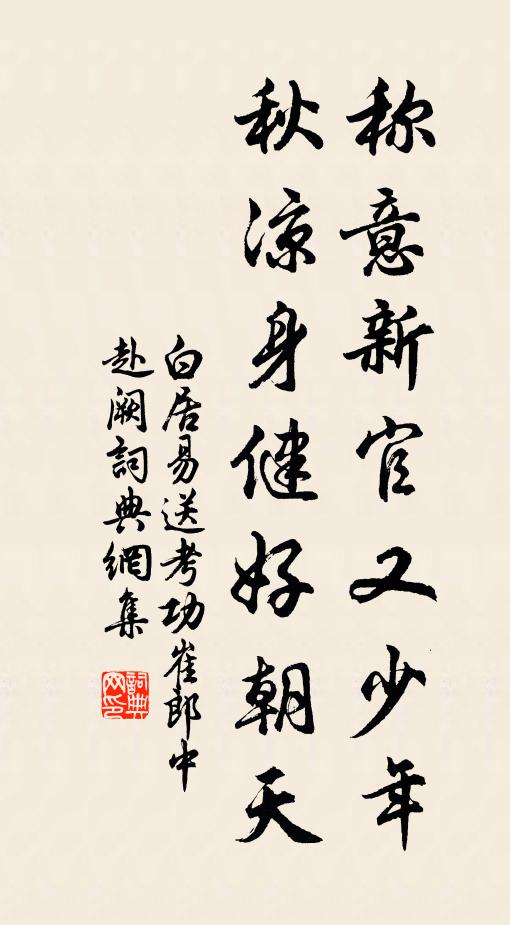 称意新官又少年
秋凉身健好朝天
白居易送考功崔郎中
赴阙詞典網集
詞典网印